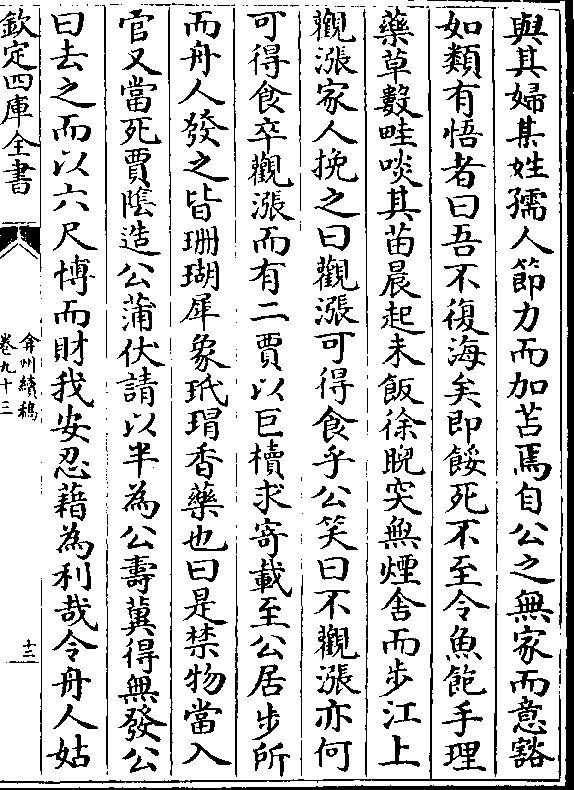 與其婦某姓孺人節力而加苦焉自公之無家而意豁
如類有悟者曰吾不復海矣即餒死不至令魚飽手理
藥草數畦啖其苗晨起未飯徐睨突無煙舍而步江上
觀漲家人挽之曰觀漲可得食乎公笑曰不觀漲亦何
可得食卒觀漲而有二賈以巨櫝求寄載至公居步所
而舟人發之皆珊瑚犀象玳瑁香藥也曰是禁物當入
官又當死賈隂造公蒲伏請以半為公壽冀得無發公
曰去之而以六尺博而財我安忍藉為利哉令舟人姑
欽定四庫全書
弇州續稿
卷九十三
十三